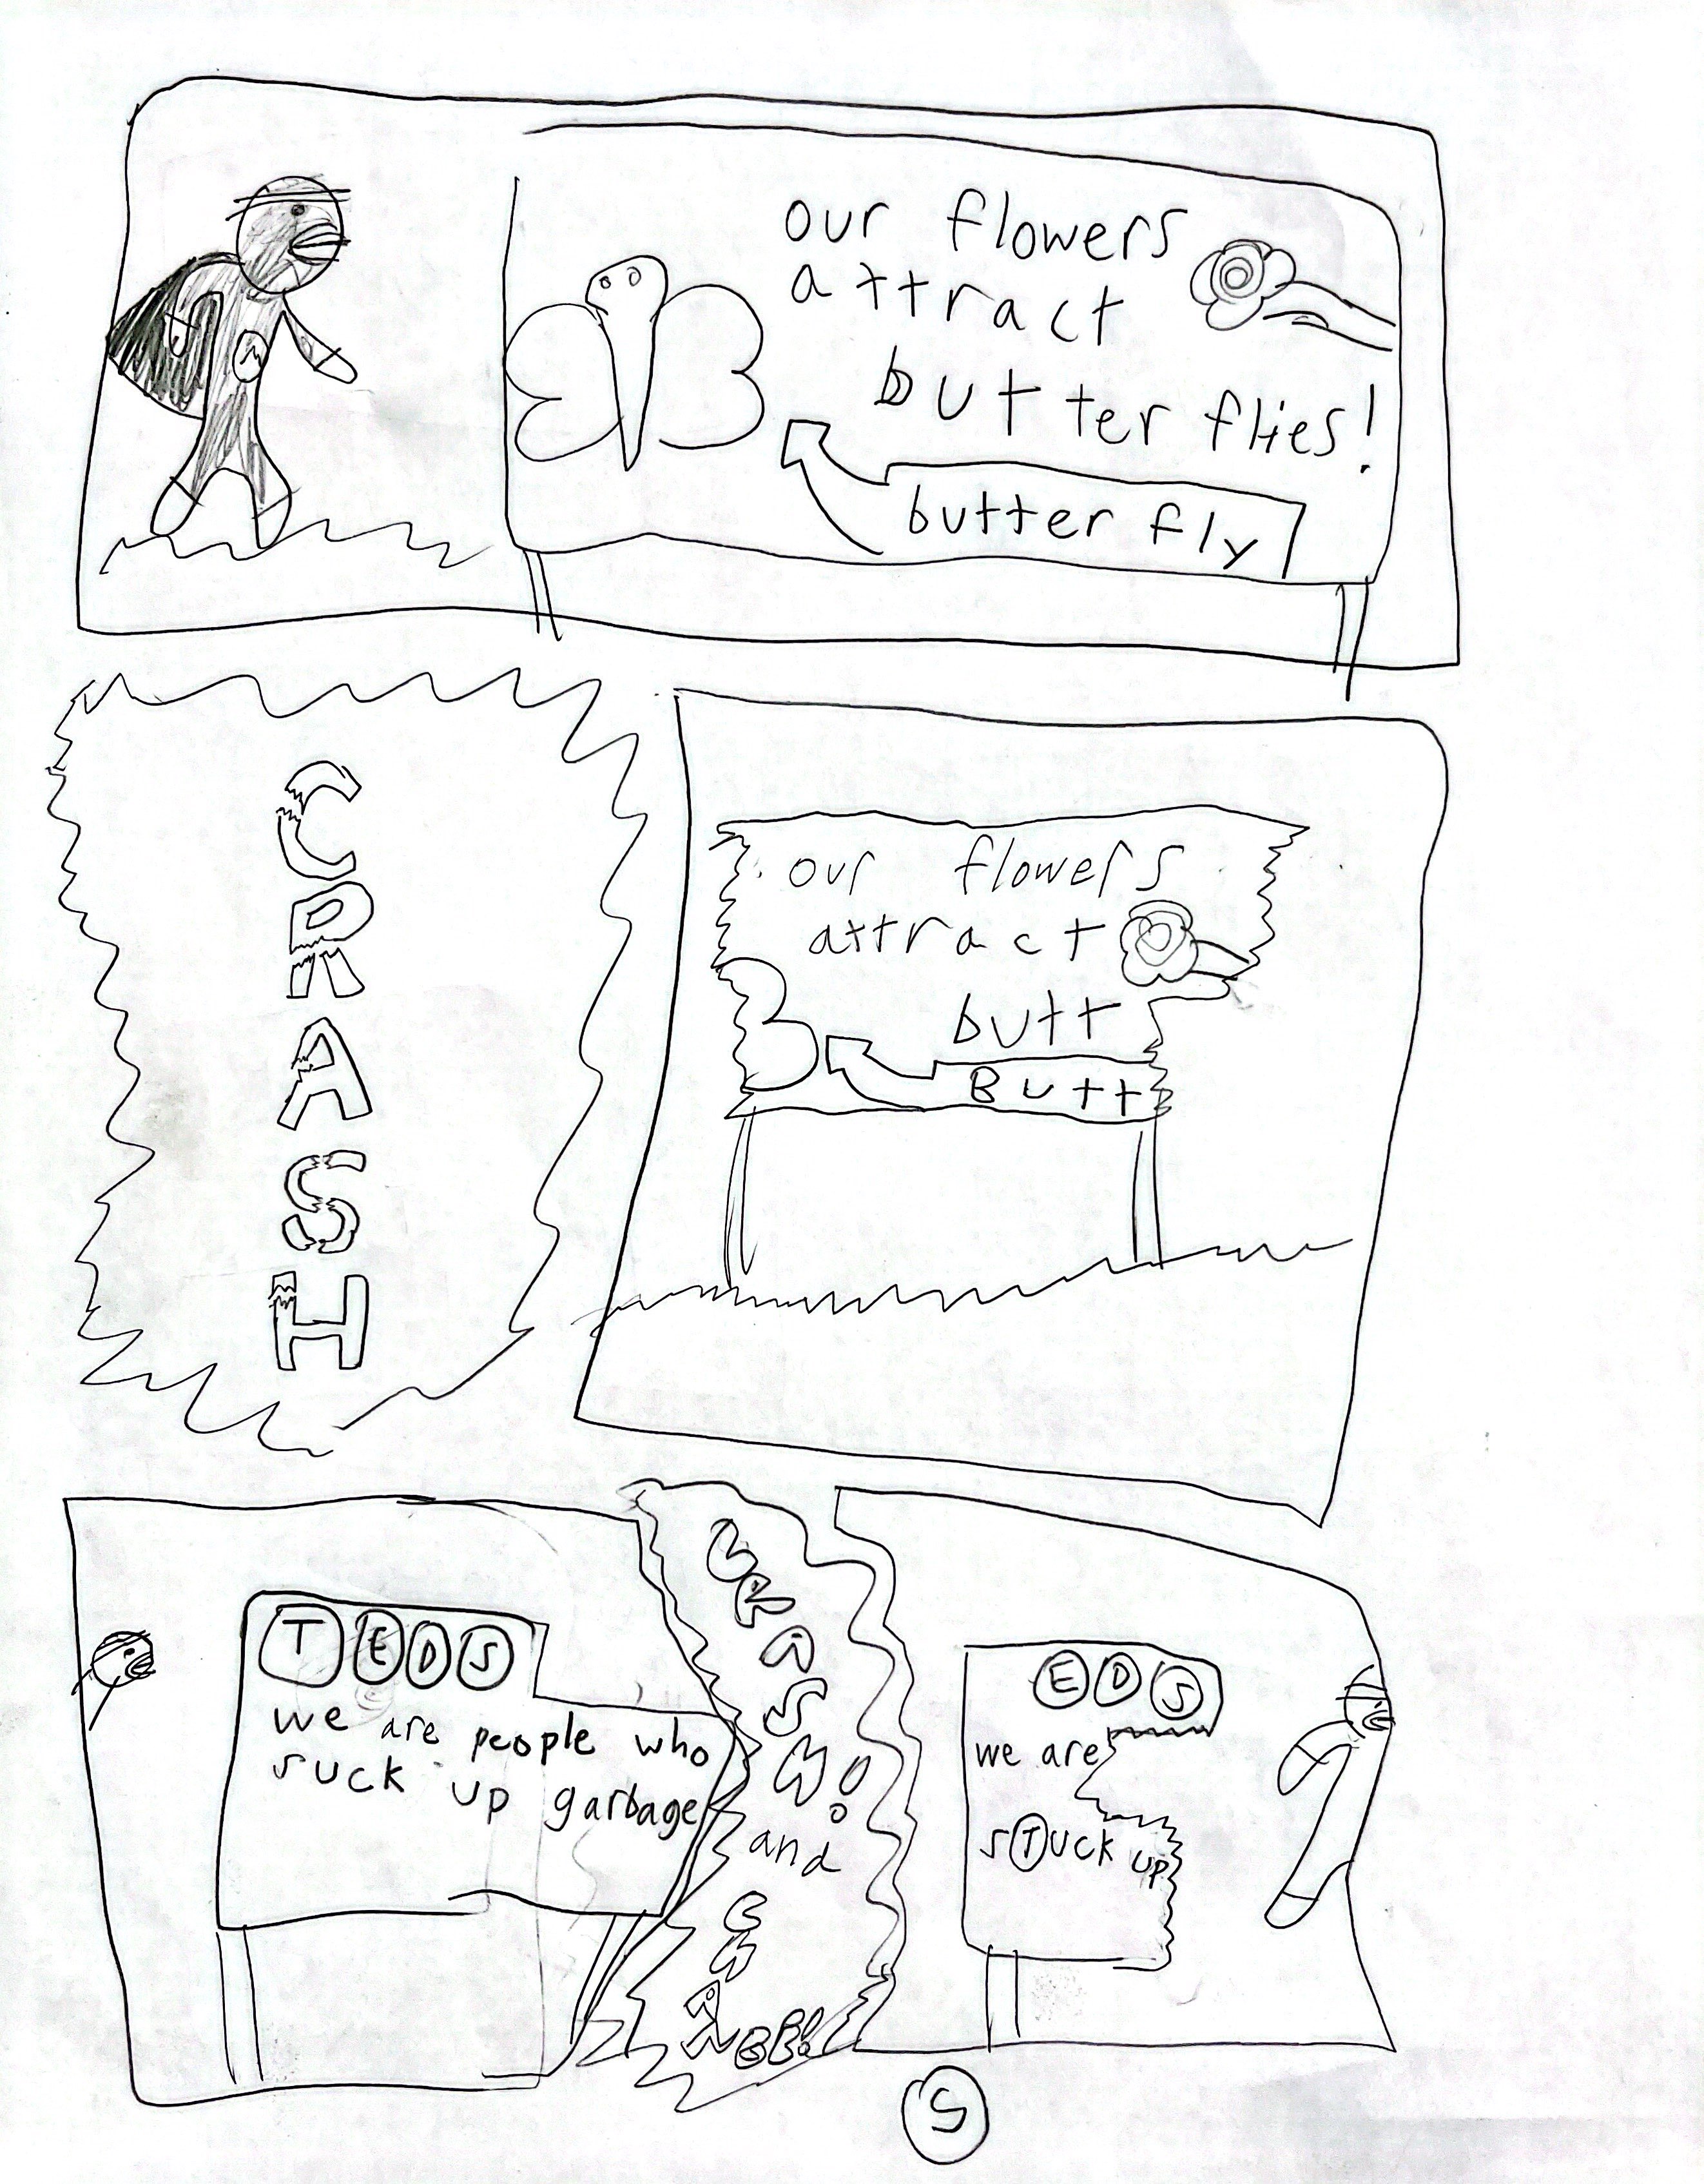 our flowers
attract
butterflies!
butter fly
CRASH
our flowers
attract
butt
Butt
TEDS
we are people who
suck up garbage
CRASH!
and
EDS
we are
sTuck up
5